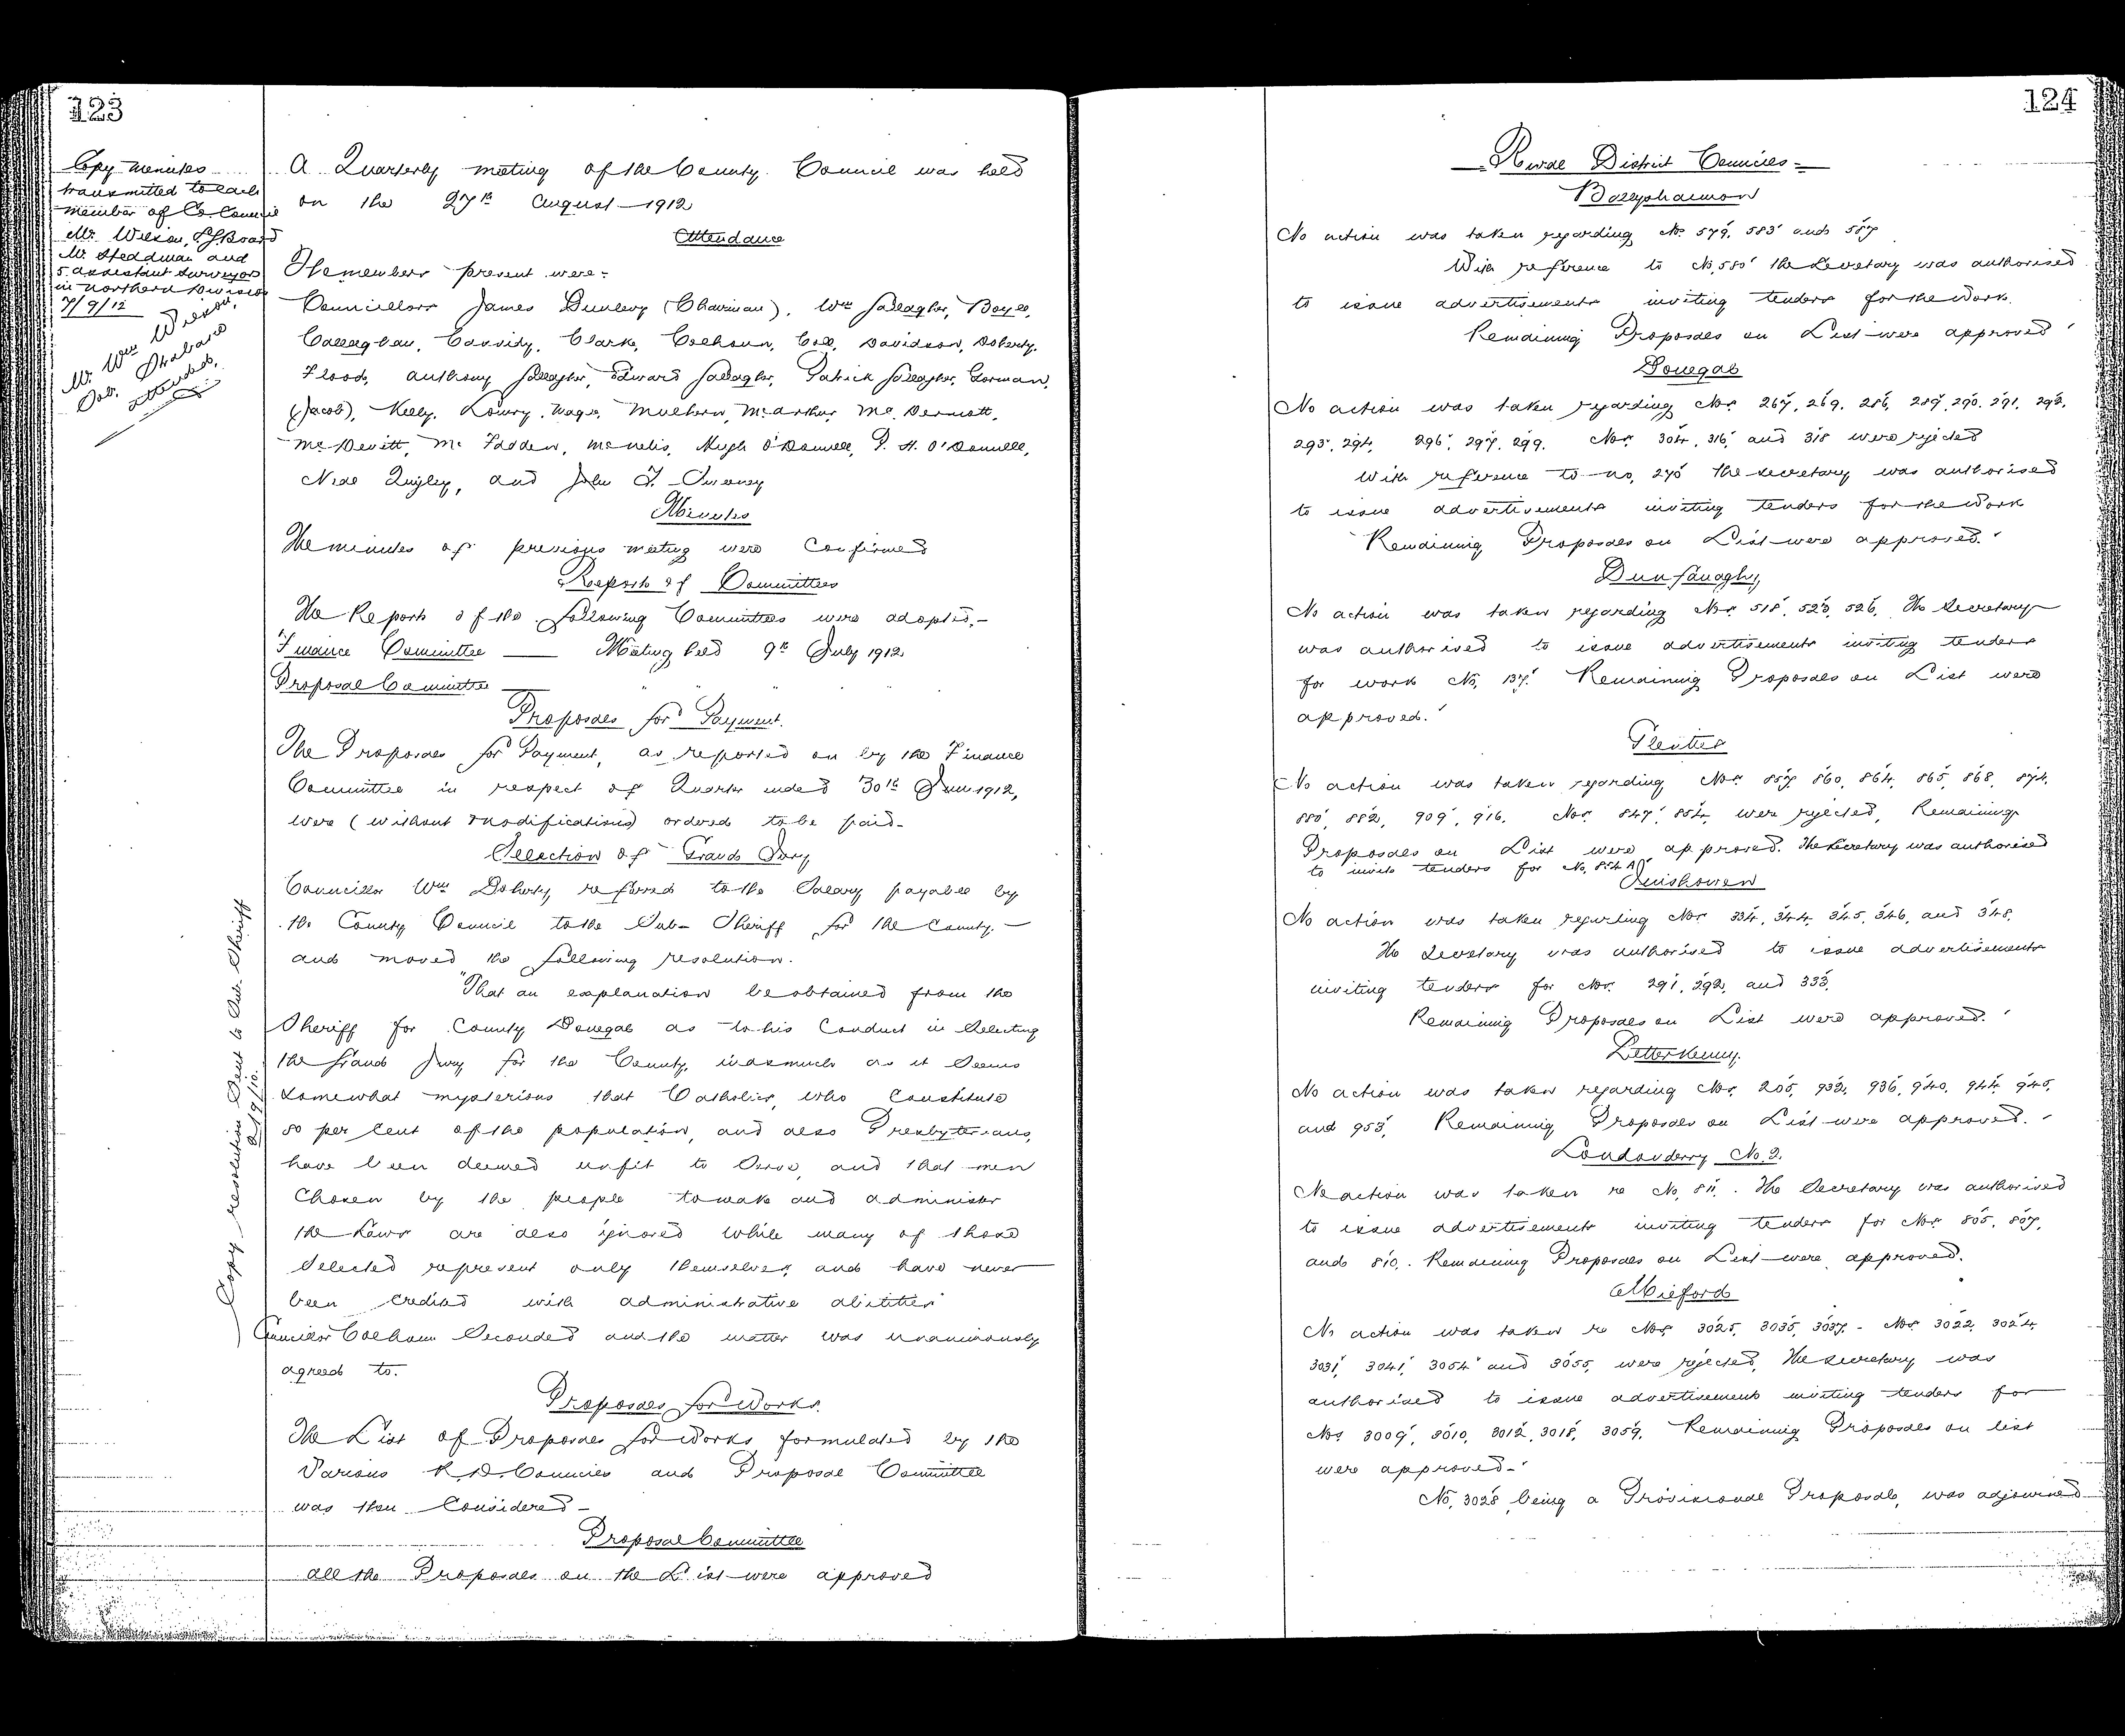 123
Copy minutes
transmitted to each
member of Co Council
Mr. Wilson, L G Board
Mr Steadman and
5 assistant surveyors
in northern Division
7/9/12
Mr. Wm Wilson,
attended
A Quarterly meeting of the County Council was held
on the 27th August 1912
Attendance
The members present were:
Councillors James Dunlevy (Chairman), Wm Gallagher, Boyle,
Callaghan, Cassidy, Clarke, Colhoun, Coll, Davidson, Doherty,
Flood, Anthony Gallagher, Edward Gallagher, Patrick Gallagher, Gorman,
(Jacob), Kelly, Lowry, Magee, Mulhern, McArthur, Mc Dermott,
Mc Devitt, Mc Fadden, McNelis, Hugh O'Donnell, P. H. O'Donnell,
Niall Quigley, and John T. Sweeney
Minutes
The minutes of previous meeting were confirmed
Reports of Committees
The Reports of the following Committees were adopted.-
Finance Committee — Meeting held 9th July 1912
Proposal Committee — " " "
Proposals for Payment.
The Proposals for Payment, as reported on by the Finance
Committee in respect of Quarter ended 30th June 1912,
were (without modifications) ordered to be paid-
Selection of Grand Jury
Councillor Wm Doherty, referred to the Salary payable by
the County Council to the Sub-Sheriff for the County.-
and moved the following resolution.
"That an explanation be obtained from the
Sheriff for County Donegal as to his Conduct in Selecting
the Grand Jury for the County, inasmuch as it Seems
Somewhat mysterious that Catholics, who Constitute
80 per Cent of the population, and also Presbyterians,
have been deemed unfit to Serve, and that men
Chosen by the people to make and administer
the Laws are also ignored while many of those
Selected represent only themselves, and have never
been credited with administrative abilities"
Councillor Colhoun Seconded and the matter was unanimously
agreed to.
Copy resolution Sent to Sub-Sheriff
Proposals for Works.
The List of Proposals for Works formulated by the
Various R. D. Councils and Proposal Committee
was then Considered-
Proposal Committee
All the Proposals on the List were approved
124
Rural District Councils-
Ballyshannon
No action was taken regarding Nos. 579, 583 and 587
With reference to No, 580 the Secretary was authorised
to issue advertisements inviting tenders for the work.
Remaining Proposals on List were approved
Donegal
No action was taken regarding Nos. 267, 269, 286, 289, 290, 291, 292,
293, 294, 296, 297, 299. Nos. 304, 316, and 318 were rejected
With reference to no, 275 the secretary was authorised
to issue advertisements inviting tenders for the work
Remaining Proposals on List were approved.
Dunfanaghy
No action was taken regarding Nos. 518, 523, 526, The Secretary
was authorised to issue advertisements inviting tenders
for work No, 137. Remaining Proposals on List were
approved.
Glenties
No action was taken regarding Nos. 857, 860, 864, 865, 868, 874,
880, 882, 909, 916. Nos. 847, 854, were rejected, Remaining
Proposals on List were approved. The Secretary was authorised
to invite tenders for No, 854 A
Inishowen
No action was taken regarding Nos. 334, 344, 345, 346, and 348,
The Secretary was authorised to issue advertisements
inviting tenders for Nos. 291, 292, and 333,
Remaining Proposals on List were approved.
Letterkenny.
No action was taken regarding Nos. 205, 932, 936, 940, 944, 945,
and 953, Remaining Proposals on List were approved.
Londonderry No. 2.
No action was taken re No, 811. The Secretary was authorised
to issue advertisements inviting tenders for Nos. 805, 807,
and 810. Remaining Proposals on List were approved.
Milford
No action was taken re Nos. 3025, 3035, 3037.- Nos. 3022, 3024,
3031, 3041, 3054 and 3055, were rejected, The Secretary was
authorised to issue advertisements inviting tenders for
Nos. 3009, 3010, 3012, 3018, 3059, Remaining Proposals on list
were approved-
No, 3028 being a Provisional Proposal, was adjourned